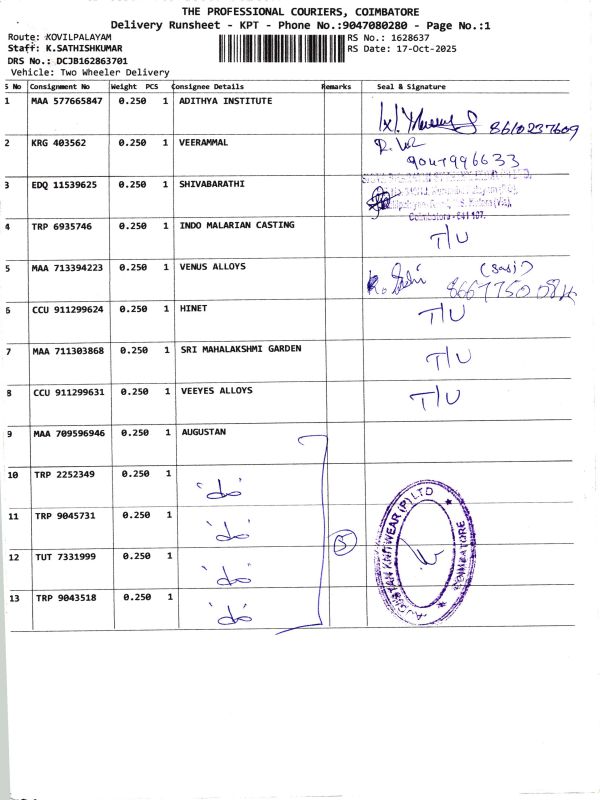 THE PROFESSIONAL COURIERS, COIMBATORE
Delivery Runsheet - KPT - Phone No.:9047080280 - Page No.:1
Route: KOVILPALAYAM RS No.: 1628637
Staff: K.SATHISHKUMAR RS Date: 17-Oct-2025
DRS No.: DCJB162863701
Vehicle: Two Wheeler Delivery
S No Consignment No Weight PCS Consignee Details Remarks Seal & Signature
1 MAA 577665847 0.250 1 ADITHYA INSTITUTE 8610237609
2 KRG 403562 0.250 1 VEERAMMAL 9047996633
3 EDQ 11539625 0.250 1 SHIVABARATHI
Coimbatore - 641 107.
4 TRP 6935746 0.250 1 INDO MALARIAN CASTING T/U
5 MAA 713394223 0.250 1 VENUS ALLOYS (Sasi)
6 CCU 911299624 0.250 1 HINET T/U
7 MAA 711303868 0.250 1 SRI MAHALAKSHMI GARDEN T/U
8 CCU 911299631 0.250 1 VEEYES ALLOYS T/U
9 MAA 709596946 0.250 1 AUGUSTAN
10 TRP 2252349 0.250 1 "do"
11 TRP 9045731 0.250 1 "do"
12 TUT 7331999 0.250 1 "do"
13 TRP 9043518 0.250 1 "do"
5
AUGUSTAN KNITWEAR (P) LTD
COIMBATORE